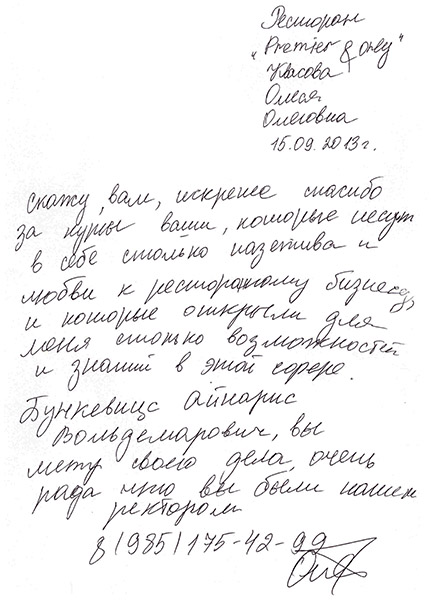 Ресторан
"Premier & only"
Квасова
Олеся
Олеговна
15.09.2013г.
Скажу, вам, искренее спасибо
за курсы ваши, которые несут
в себе столько пазетива и
любви к ресторанному бизнесу,
и которые открыли для
меня столько возможностей
и знаний в этой сфере.
Бункевицс Айнарис
Вольдемарович, вы
мету своего дела, очень
рада что вы были нашем
ректором
8(985)175-42-99